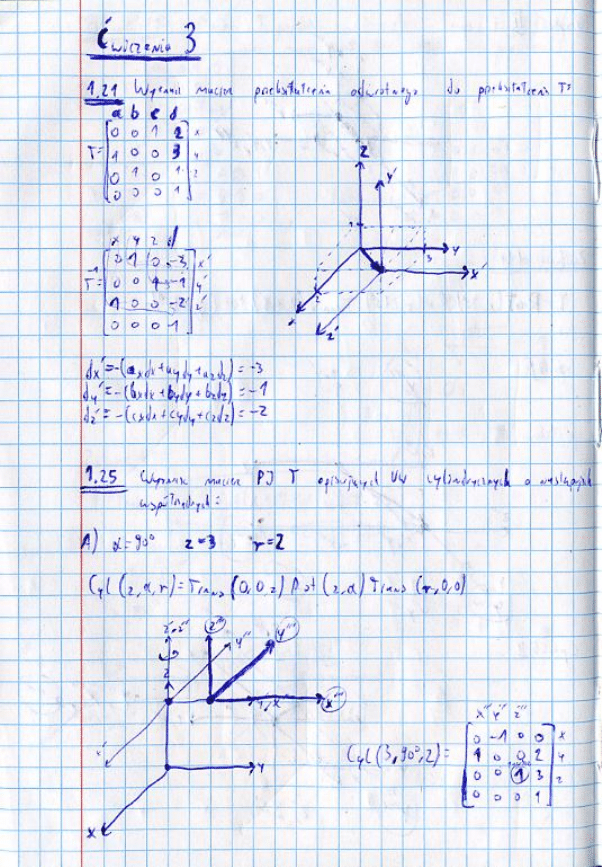 Ćwiczenia 3
1.21 Wyznacz macierz przekształcenia odwrotnego do przekształcenia T=
a b c d
T=
0 0 1 2 x
1 0 0 3 y
0 1 0 1 z
0 0 0 1
z
y'
1
y
3
x'
2
x
z'
x y z d
T⁻¹=
0 1 0 -3 x'
0 0 1 -1 y'
1 0 0 -2 z'
0 0 0 1
dx' = -(axdx+aydy+azdz) = -3
dy' = -(bxdx+bydy+bzdz) = -1
dz' = -(cxdx+cydy+czdz) = -2
1.25 Wyznacz macierz PJ T opisujących UW cylindrycznych o następujących
współrzędnych:
A) α=90° z=3 r=2
Cyl(z,α,r)=Trans(0,0,z) Rot(z,α) Trans(r,0,0)
z', z''
z'''
y''
y'''
z
x'''
x'
y
x
Cyl(3,90°,2)=
x''' y''' z'''
0 -1 0 0 x
1 0 0 2 y
0 0 1 3 z
0 0 0 1